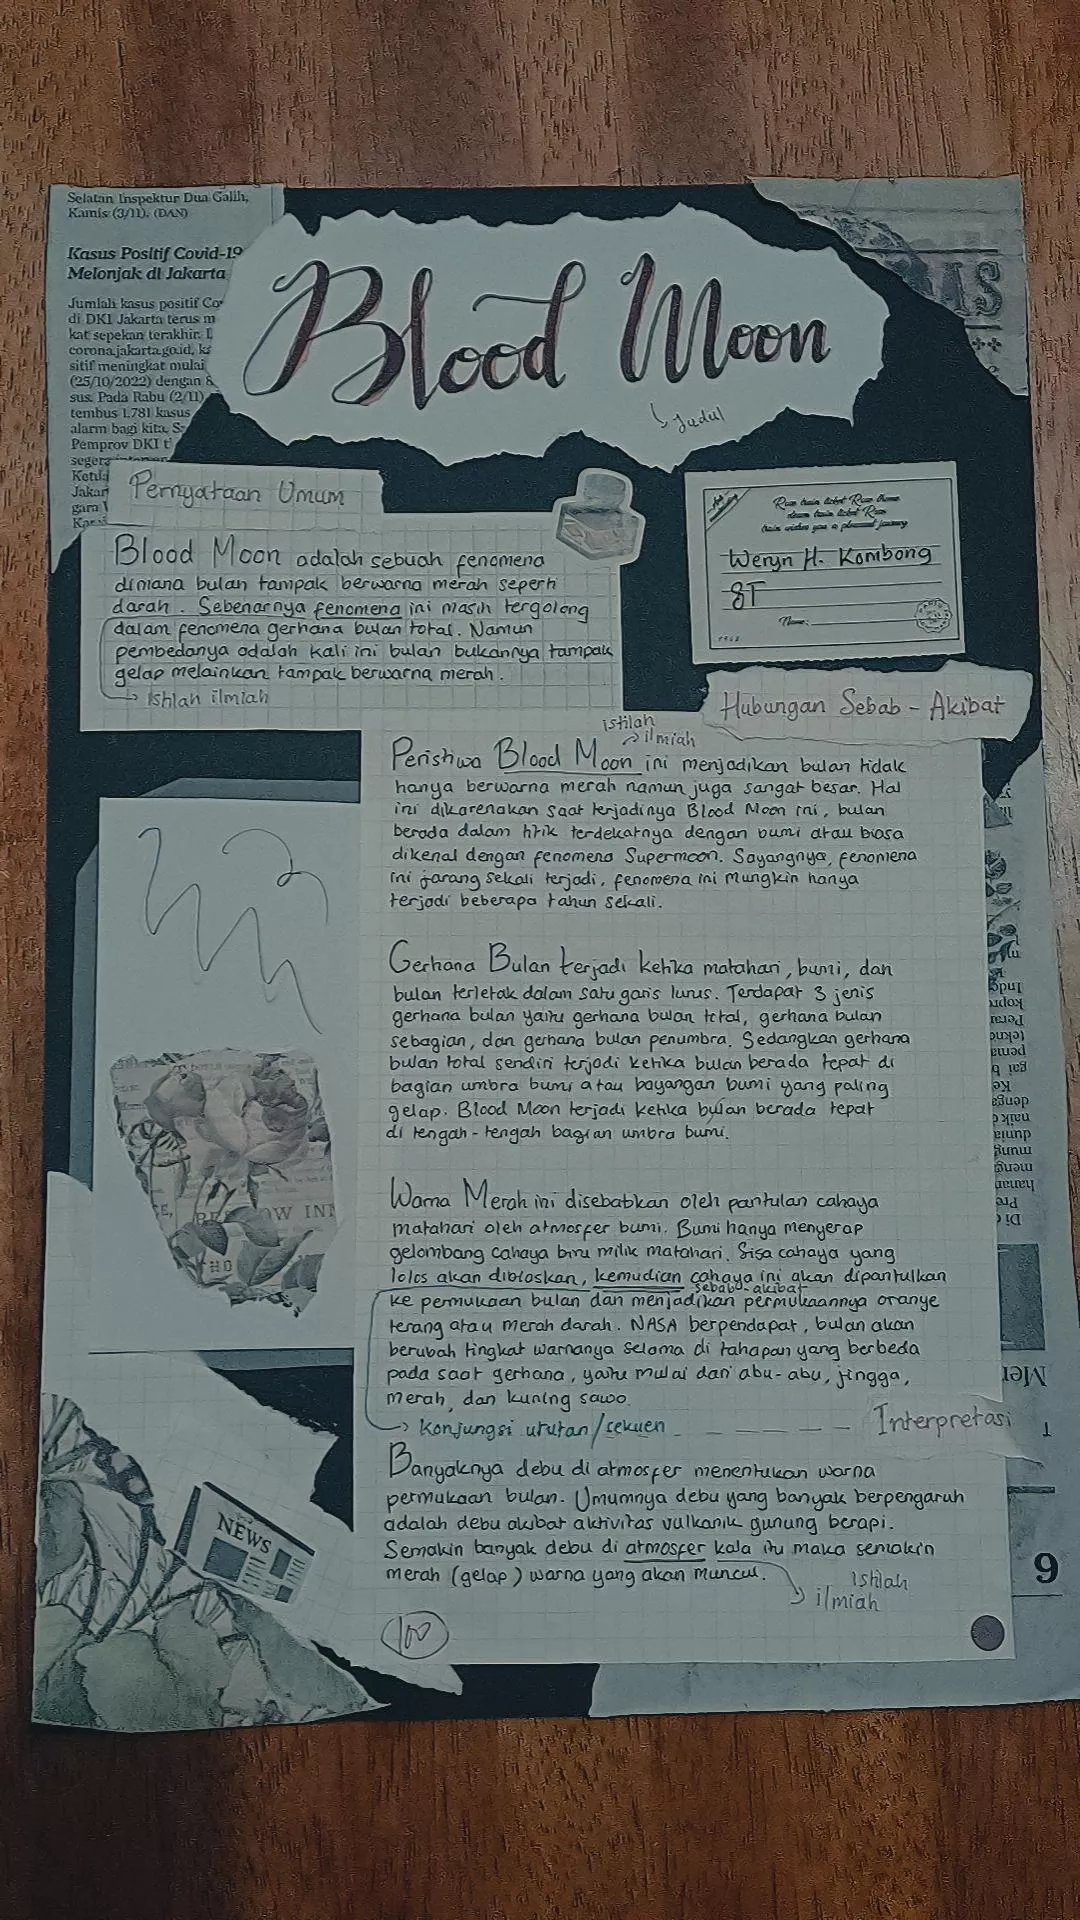 Selatan Inspektur Dua Galih,
Kamis (3/11). (DAN)
Kasus Positif Covid-19
Melonjak di Jakarta
Jumlah kasus positif Co
di DKI Jakarta terus m
kat sepekan terakhir. D
corona.jakarta.go.id, ka
sitif meningkat mulai
(25/10/2022) dengan 8
sus. Pada Rabu (2/11)
tembus 1.781 kasus
alarm bagi kita. S
Pemprov DKI t
Blood Moon
Judul
Pernyataan Umum
Blood Moon adalah sebuah fenomena
dimana bulan tampak berwarna merah seperti
darah. Sebenarnya fenomena ini masih tergolong
dalam fenomena gerhana bulan total. Namun
pembedanya adalah kali ini bulan bukannya tampak
gelap melainkan tampak berwarna merah.
Istilah ilmiah
Run train ticket Run theme
train wishes you a pleasant journey
Weryn H. Kombong
8T
Name:
Hubungan Sebab - Akibat
istilah
ilmiah
Peristiwa Blood Moon ini menjadikan bulan tidak
hanya berwarna merah namun juga sangat besar. Hal
ini dikarenakan saat terjadinya Blood Moon ini, bulan
berada dalam titik terdekatnya dengan bumi atau biasa
dikenal dengan fenomena Supermoon. Sayangnya, fenomena
ini jarang sekali terjadi, fenomena ini mungkin hanya
terjadi beberapa tahun sekali.
Gerhana Bulan terjadi ketika matahari, bumi, dan
bulan terletak dalam satu garis lurus. Terdapat 3 jenis
gerhana bulan yaitu gerhana bulan total, gerhana bulan
sebagian, dan gerhana bulan penumbra. Sedangkan gerhana
bulan total sendiri terjadi ketika bulan berada tepat di
bagian umbra bumi atau bayangan bumi yang paling
gelap. Blood Moon terjadi ketika bulan berada tepat
di tengah-tengah bagian umbra bumi.
Warna Merah ini disebabkan oleh pantulan cahaya
matahari oleh atmosfer bumi. Bumi hanya menyerap
gelombang cahaya biru milik matahari. Sisa cahaya yang
lolos akan dibiaskan, kemudian cahaya ini akan dipantulkan
sebab-akibat
ke permukaan bulan dan menjadikan permukaannya oranye
terang atau merah darah. NASA berpendapat, bulan akan
berubah tingkat warnanya selama di tahapan yang berbeda
pada saat gerhana, yaitu mulai dari abu-abu, jingga,
merah, dan kuning sawo.
Konjungsi urutan/sekuen
Interpretasi
Banyaknya debu di atmosfer menentukan warna
permukaan bulan. Umumnya debu yang banyak berpengaruh
adalah debu akibat aktivitas vulkanik gunung berapi.
Semakin banyak debu di atmosfer kala itu maka semakin
merah (gelap) warna yang akan muncul.
Istilah
ilmiah
NEWS
100
6